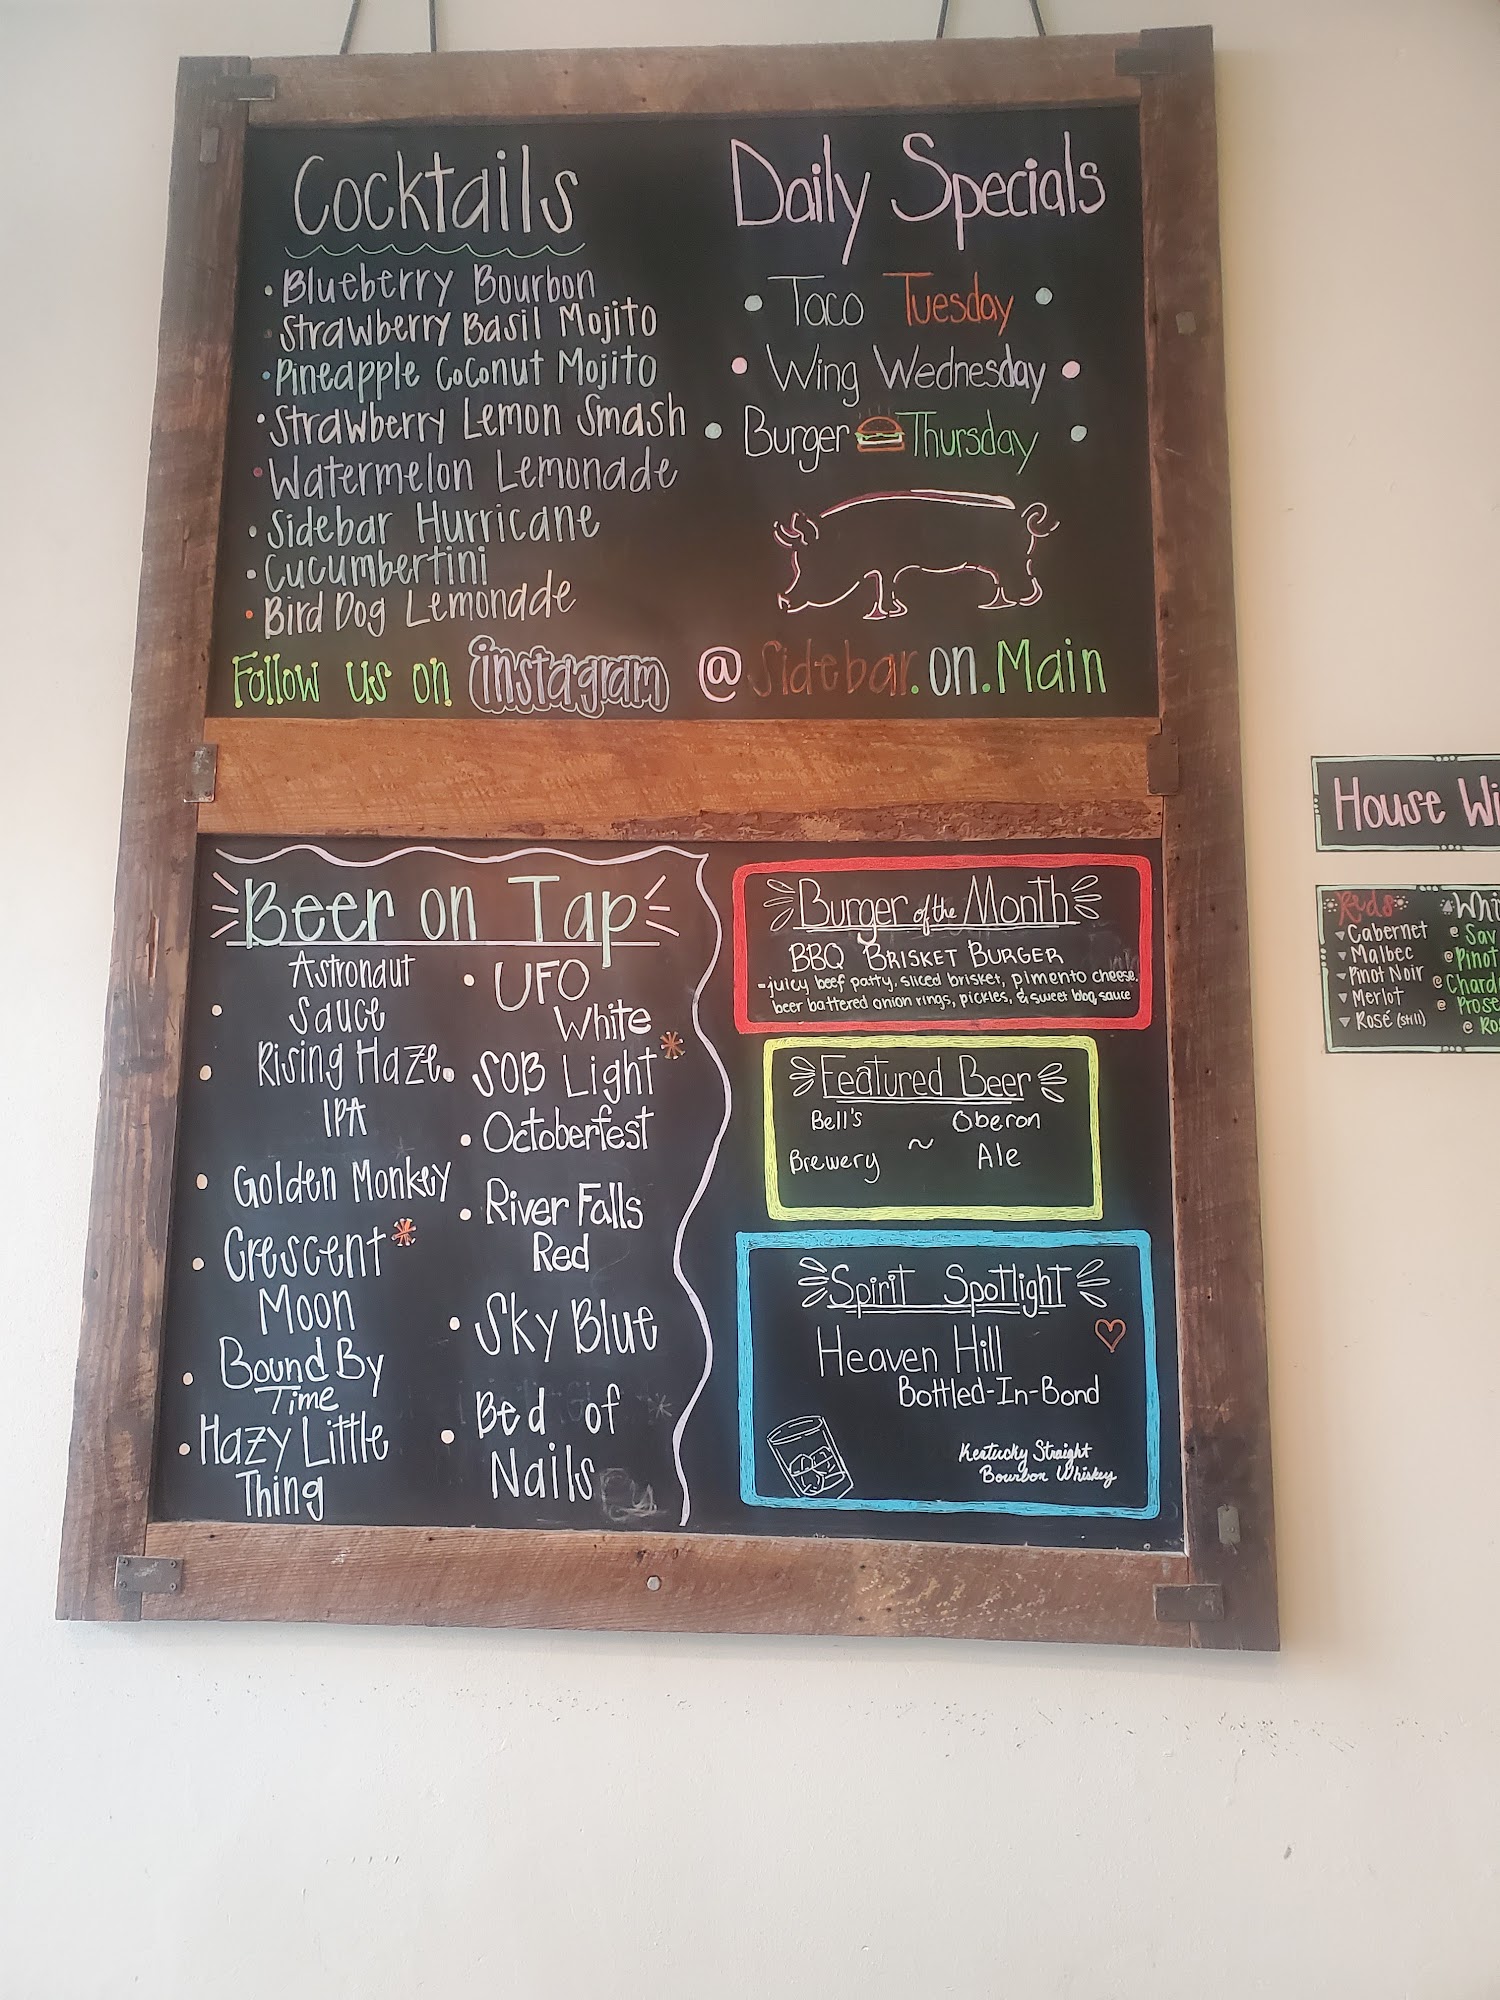 Cocktails
Blueberry Bourbon
Strawberry Basil Mojito
Pineapple Coconut Mojito
Strawberry Lemon Smash
Watermelon Lemonade
Sidebar Hurricane
Cucumbertini
Bird Dog Lemonade
Daily Specials
Taco Tuesday
Wing Wednesday
Burger Thursday
Follow us on instagram @Sidebar.on.Main
Beer on Tap
Astronaut
Sauce
Rising Haze
IPA
Golden Monkey
Crescent*
Moon
Bound By
Time
Hazy Little
Thing
UFO
White
SOB Light*
Octoberfest
River Falls
Red
Sky Blue
Bed of
Nails
Burger of the Month
BBQ Brisket Burger
-juicy beef patty, sliced brisket, pimento cheese,
beer battered onion rings, pickles, & sweet bbq sauce
Featured Beer
Bell's
Brewery
~
Oberon
Ale
Spirit Spotlight
Heaven Hill
Bottled-In-Bond
Kentucky Straight
Bourbon Whiskey
House Wi
Reds
Cabernet
Malbec
Pinot Noir
Merlot
Rosé (still)
Whi
Sav
Pinot
Chard
Prose
Ro